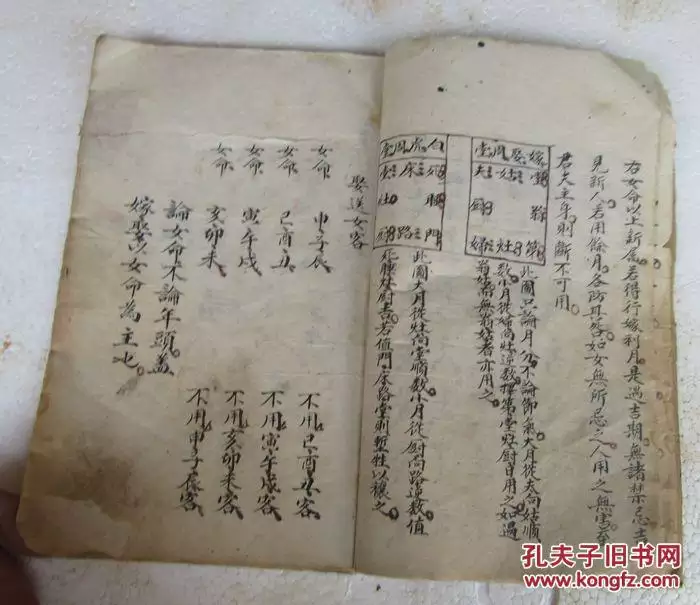 右女命以上新處若得行嫁利月是過吉期無諸禁忌
見新人若用餘月各防其咎如女無所忌之人用之無害
君夫主年則斷不可用
嫁娶周堂
堂 翁 第
姑 灶
夫 廚 婦
此圖只論月分不論節氣大月從夫向姑順
數小月從婦向灶逆數擇第堂灶廚日用之如遇
翁姑而無翁姑者亦用之
白虎周堂
門
床 路
灶 廚
此圖大月從灶向堂順數小月從廚向路逆數值
灶廚去若值門床路堂則
娶送女客
女命 申子辰 不用巳酉丑客
女命 巳酉丑 不用寅午戌客
女命 寅午戌 不用亥卯未客
女命 亥卯未 不用申子辰客
論女命不論年頭蓋
嫁娶以女命為主也
孔夫子旧书网
www.kongfz.com